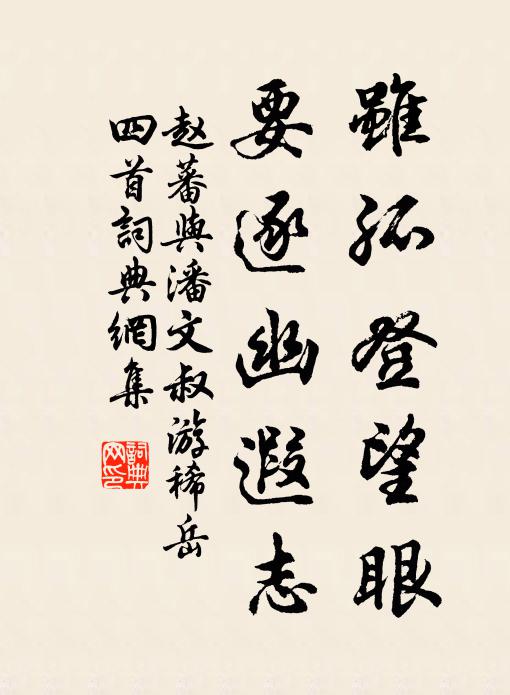 雖孤登望眼
要逐幽遐志
赵蕃與潘文叔游稀岳
四首詞典網集
詞典
网印